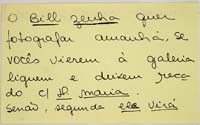 O Bill zenha quer
fotografar amanhã, se
vocês vierem à galeria
liguem e deixem reca
do c/ maria.
Senão, segunda ela virá